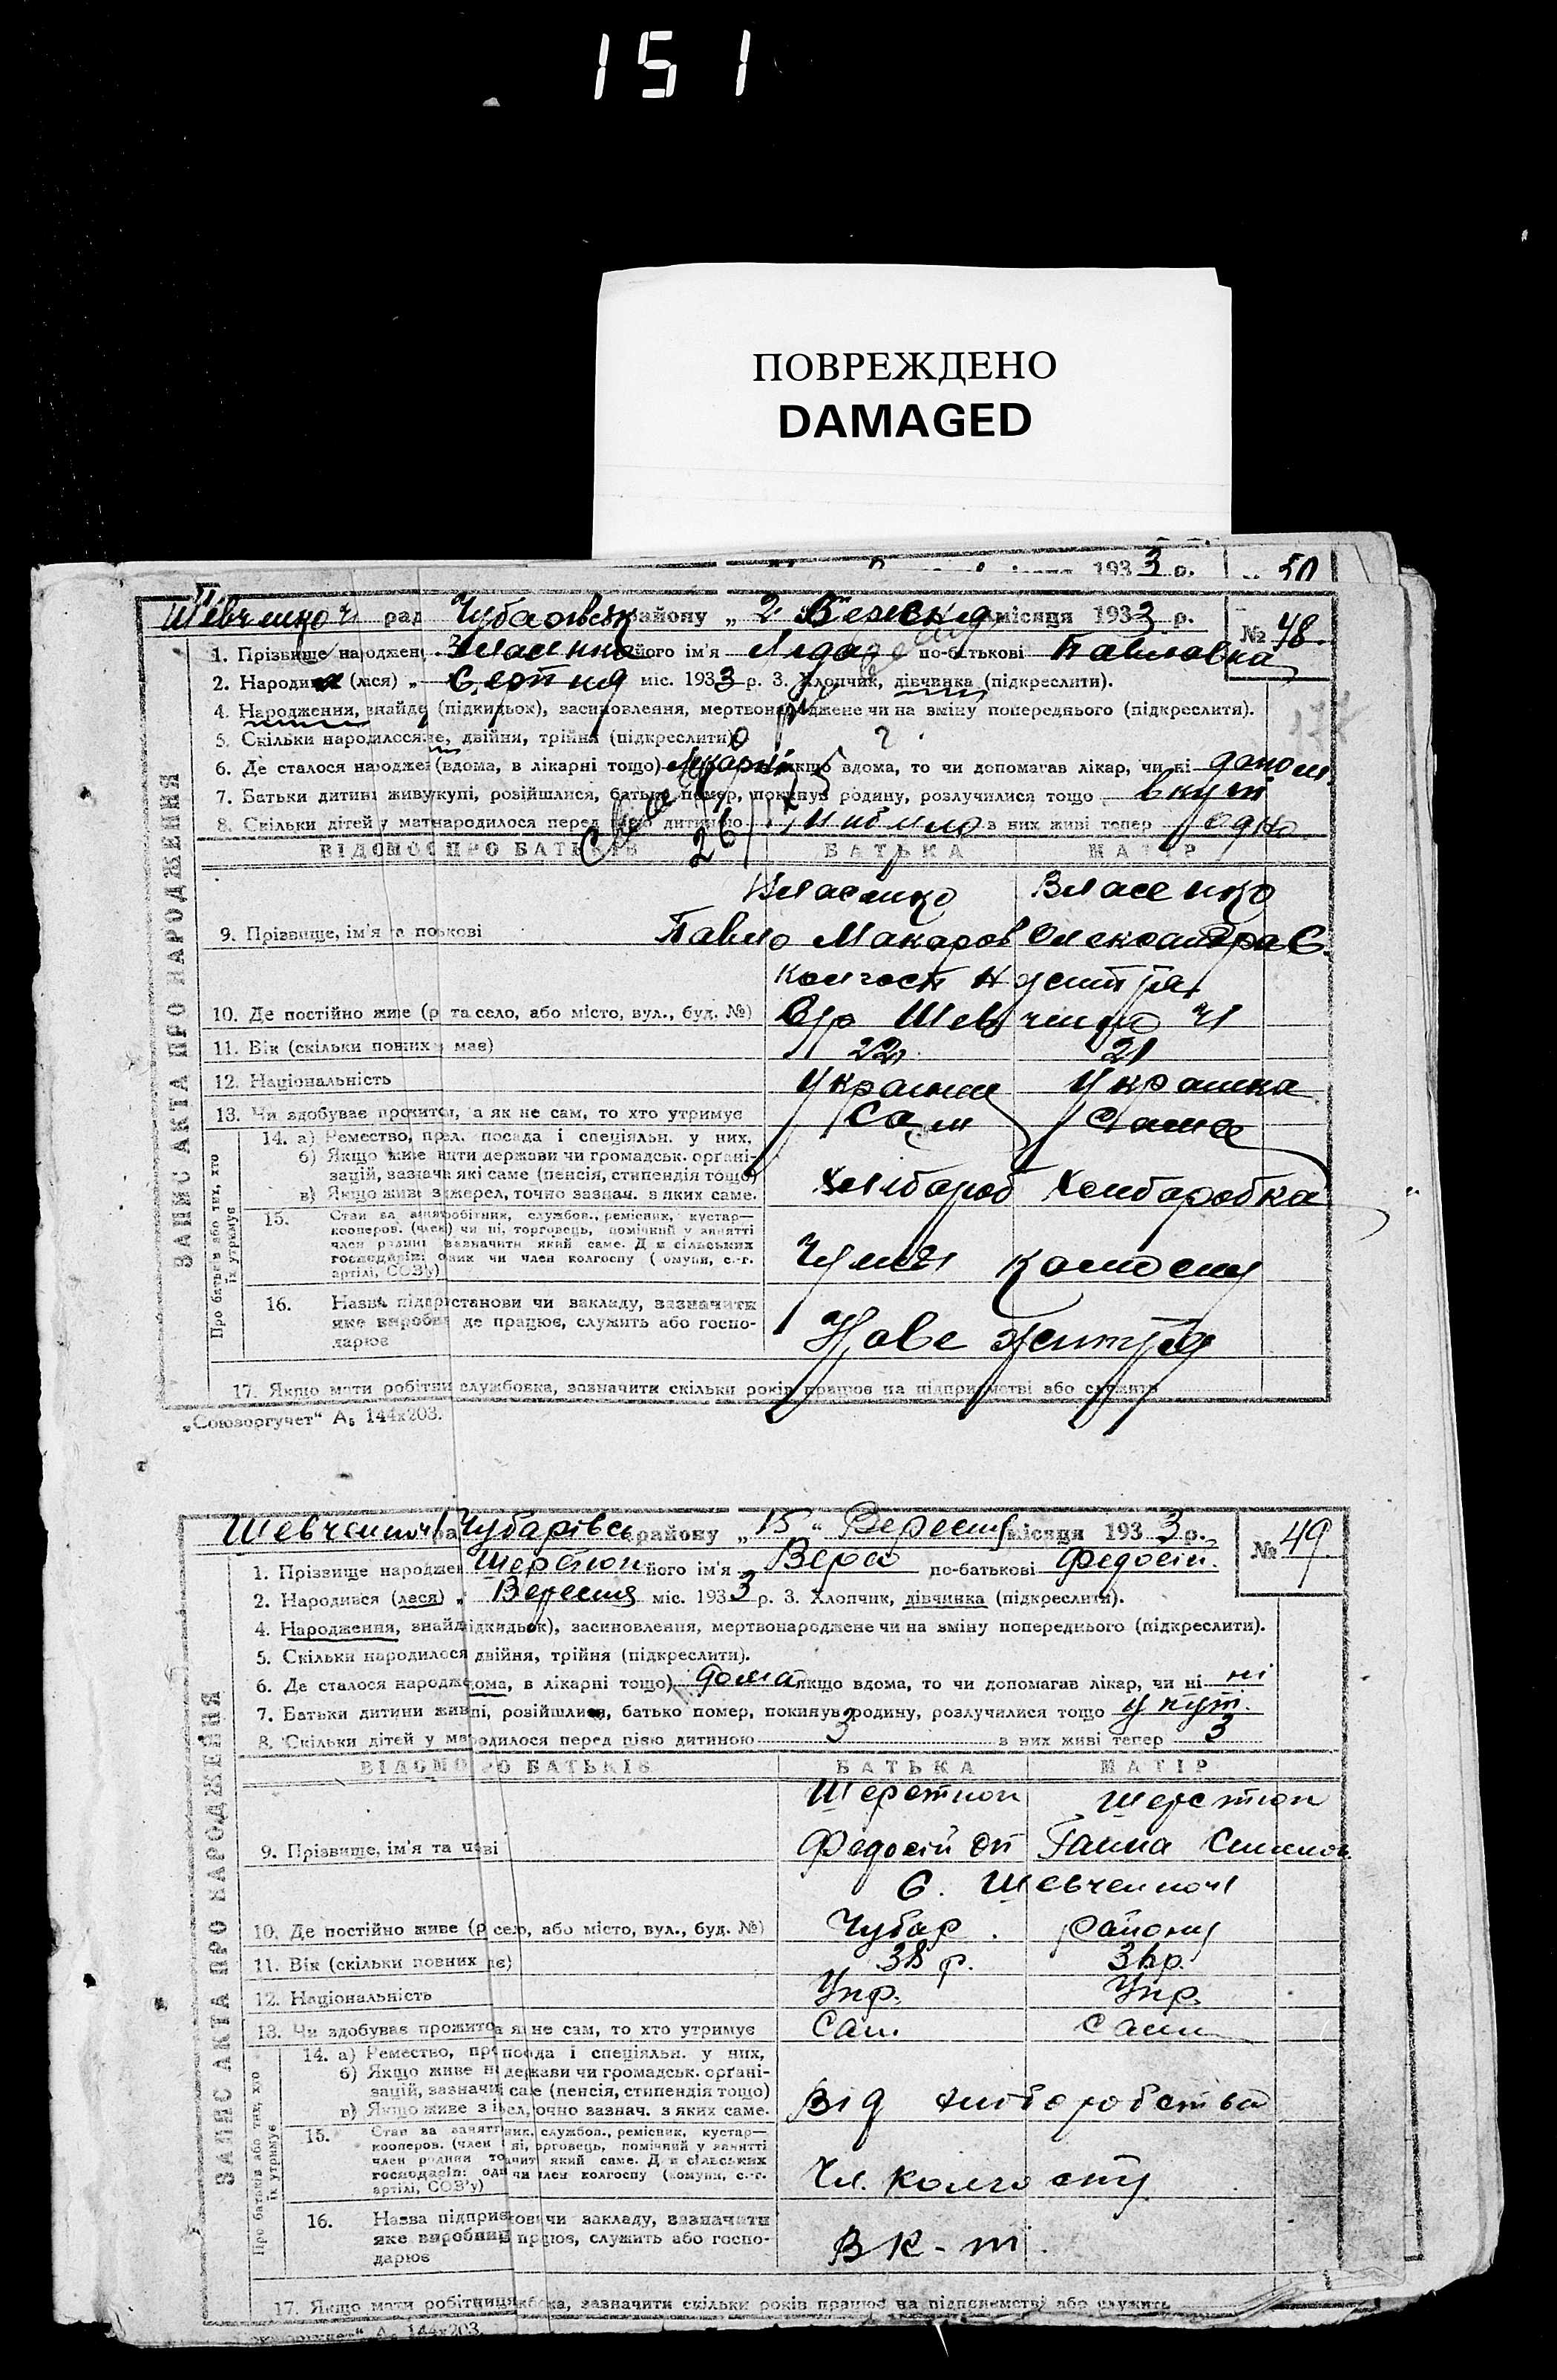 151
ПОВРЕЖДЕНО
DAMAGED
193 3 р. 50
рад Чубарівськ району „ 2 місяця 193 3 р. № 48.
1. Прізвище народжен його ім'я Лида по-батькові Павловна
2. Народи (лася) „ Серпня міс. 193 3 р. 3. Хлопчик, дівчинка (підкреслити).
4. Народження, знайде (підкидьок), засиновлення, мертвонароджене чи на зміну попереднього (підкреслити).
5. Скільки народилося не, двійня, трійня (підкреслити)
6. Де сталося народже (вдома, в лікарні тощо) якщо вдома, то чи допомагав лікар, чи ні
7. Батьки дитини живу купі, розійшлися, батько помер, покинув родину, розлучилися тощо вкупі
8. Скільки дітей у мат народилося перед цією дитиною з них живі тепер одно
ВІДОМОС ПРО БАТЬКІВ 26 БАТЬКА МАТІР
Власенко Власенко
9. Прізвище, ім'я та по ькові Павло Макаров Олександра Є.
10. Де постійно живе (р та село, або місто, вул., буд. №)
11. Вік (скільки повних має) 22 21
12. Національність Українец Українка
13. Чи здобуває прожиток, а як не сам, то хто утримує Сам Сама
14. а) Ремество, пр посада і спеціяльн. у них,
б) Якщо живе шти держави чи громадськ. органі-
зацій, зазнач які саме (пенсія, стипендія тощо)
в) Якщо живе з джерел, точно зазнач. з яких саме. Хлібороб Хлібаробка
15. Стан за занят робітник, службов., ремісник, кустар—
кооперов. (член) чи ні, торговець, помічний у занятті
член родини зазначити який саме. Для сільських
господарів: одник чи член колгоспу (комуни, с.-г.
артілі, СОЗ'у) Член колгоспу
16. Назва підпр станови чи закладу, зазначити
яке виробни де працює, служить або госпо-
дарює Нове життя
17. Якщо мати робітни службовка, зазначити скільки років працює на підприємстві або служить
„Союзоргучет“ А₅ 144х203.
ЗАПИС АКТА ПРО НАРОДЖЕННЯ
Про батьків або тих, хто
їх утримує
Чубарівсь району „ 15 “ Вересня місяця 193 3 р. № 49.
1. Прізвище народжен Шерстюк його ім'я Вера по-батькові Федосії.
2. Народився (лася) „ Вересня міс. 193 3 р. 3. Хлопчик, дівчинка (підкреслити).
4. Народження, знайд ідкидьок), засиновлення, мертвонароджене чи на зміну попереднього (підкреслити).
5. Скільки народилося двійня, трійня (підкреслити).
6. Де сталося народже ома, в лікарні тощо) дома якщо вдома, то чи допомагав лікар, чи ні ні
7. Батьки дитини жив пі, розійшлися, батько помер, покинув родину, розлучилися тощо у купі.
8. Скільки дітей у ма родилося перед цією дитиною 3 з них живі тепер 3
ВІДОМО РО БАТЬКІВ БАТЬКА МАТІР
Шерстюк Шерстюк
9. Прізвище, ім'я та ч ві Федосій Ганна
С. Шевченко
10. Де постійно живе (р село, або місто, вул., буд. №) Чубар. району
11. Вік (скільки повних ає) 38 р. 36р.
12. Національність Укр. Укр.
13. Чи здобуває прожиток а як не сам, то хто утримує Сам. Сами
14. а) Ремество, пр посада і спеціяльн. у них,
б) Якщо живе н держави чи громадськ. органі-
зацій, зазначи саме (пенсія, стипендія тощо)
в) Якщо живе з і рел, точно зазнач. з яких саме. Від хлібороб ства
15. Стан за занят ник, службов., ремісник, кустар—
кооперов. (член ні, торговець, помічний у занятті
член родини то ачит який саме. Для сільських
господарів: оди чи член колгоспу (комуни, с.-г.
артілі, СОЗ'у) Чл. колгоспу
16. Назва підприє ови чи закладу, зазначити
яке виробниц працює, служить або госпо-
дарює В к-т.
17. Якщо мати робітниця жбовка, зазначити скільки років працює на підприємстві або служить
А₅ 144х203.
ЗАПИС АКТА ПРО НАРОДЖЕННЯ
Про батьків або тих, хто
їх утримує